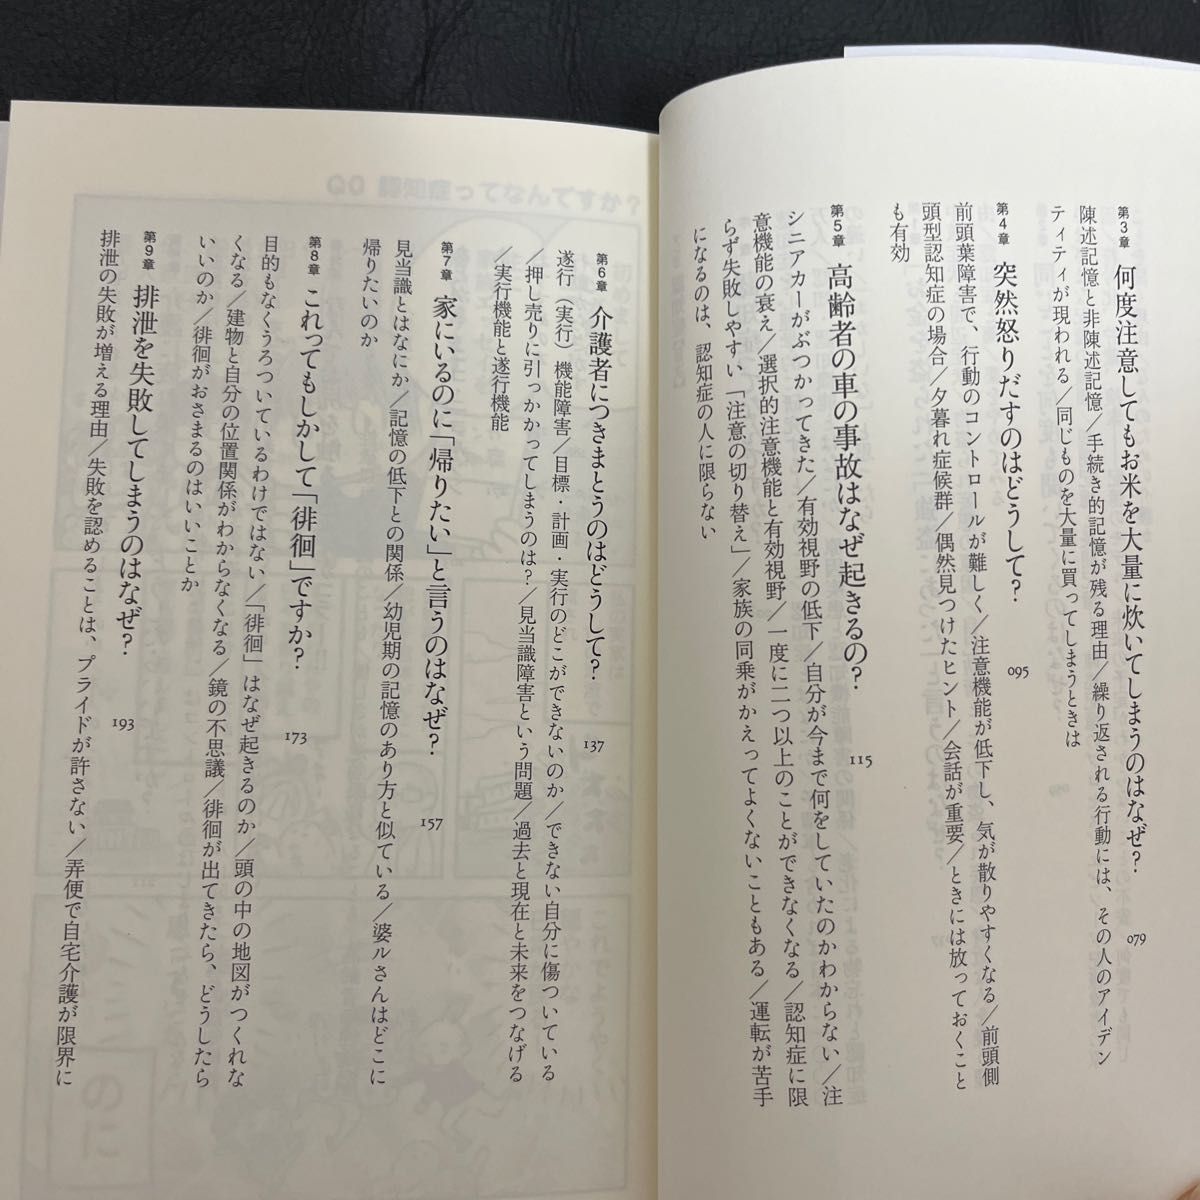 第3章 何度注意してもお米を大量に炊いてしまうのはなぜ? 079
陳述記憶と非陳述記憶/手続き的記憶が残る理由/繰り返される行動には、その人のアイデン
ティティが現われる/同じものを大量に買ってしまうときは
第4章 突然怒りだすのはどうして? 095
前頭葉障害で、行動のコントロールが難しく/注意機能が低下し、気が散りやすくなる/前頭側
頭型認知症の場合/夕暮れ症候群/偶然見つけたヒント/会話が重要/ときには放っておくこと
も有効
第5章 高齢者の車の事故はなぜ起きるの? 115
シニアカーがぶつかってきた/有効視野の低下/自分が今まで何をしていたのかわからない/注
意機能の衰え/選択的注意機能と有効視野/一度に二つ以上のことができなくなる/認知症に限
らず失敗しやすい「注意の切り替え」/家族の同乗がかえってよくないこともある/運転が苦手
になるのは、認知症の人に限らない
第6章 介護者につきまとうのはどうして? 137
遂行(実行)機能障害/目標・計画・実行のどこができないのか/できない自分に傷ついている
/押し売りに引っかかってしまうのは?/見当識障害という問題/過去と現在と未来をつなげる
/実行機能と遂行機能
第7章 家にいるのに「帰りたい」と言うのはなぜ? 157
見当識とはなにか/記憶の低下との関係/幼児期の記憶のあり方と似ている/婆ルさんはどこに
帰りたいのか
第8章 これってもしかして「徘徊」ですか? 173
目的もなくうろついているわけではない/「徘徊」はなぜ起きるのか/頭の中の地図がつくれな
くなる/建物と自分の位置関係がわからなくなる/鏡の不思議/徘徊が出てきたら、どうしたら
いいのか/徘徊がおさまるのはいいことか
第9章 排泄を失敗してしまうのはなぜ? 193
排泄の失敗が増える理由/失敗を認めることは、プライドが許さない/弄便で自宅介護が限界に